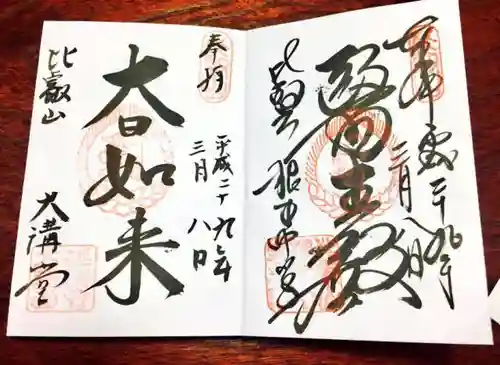 奉拝
平成二十九年
三月八日
醫王殿
比叡 根本中堂
奉拝
平成二十九年
三月八日
大日如来
比叡山
大講堂